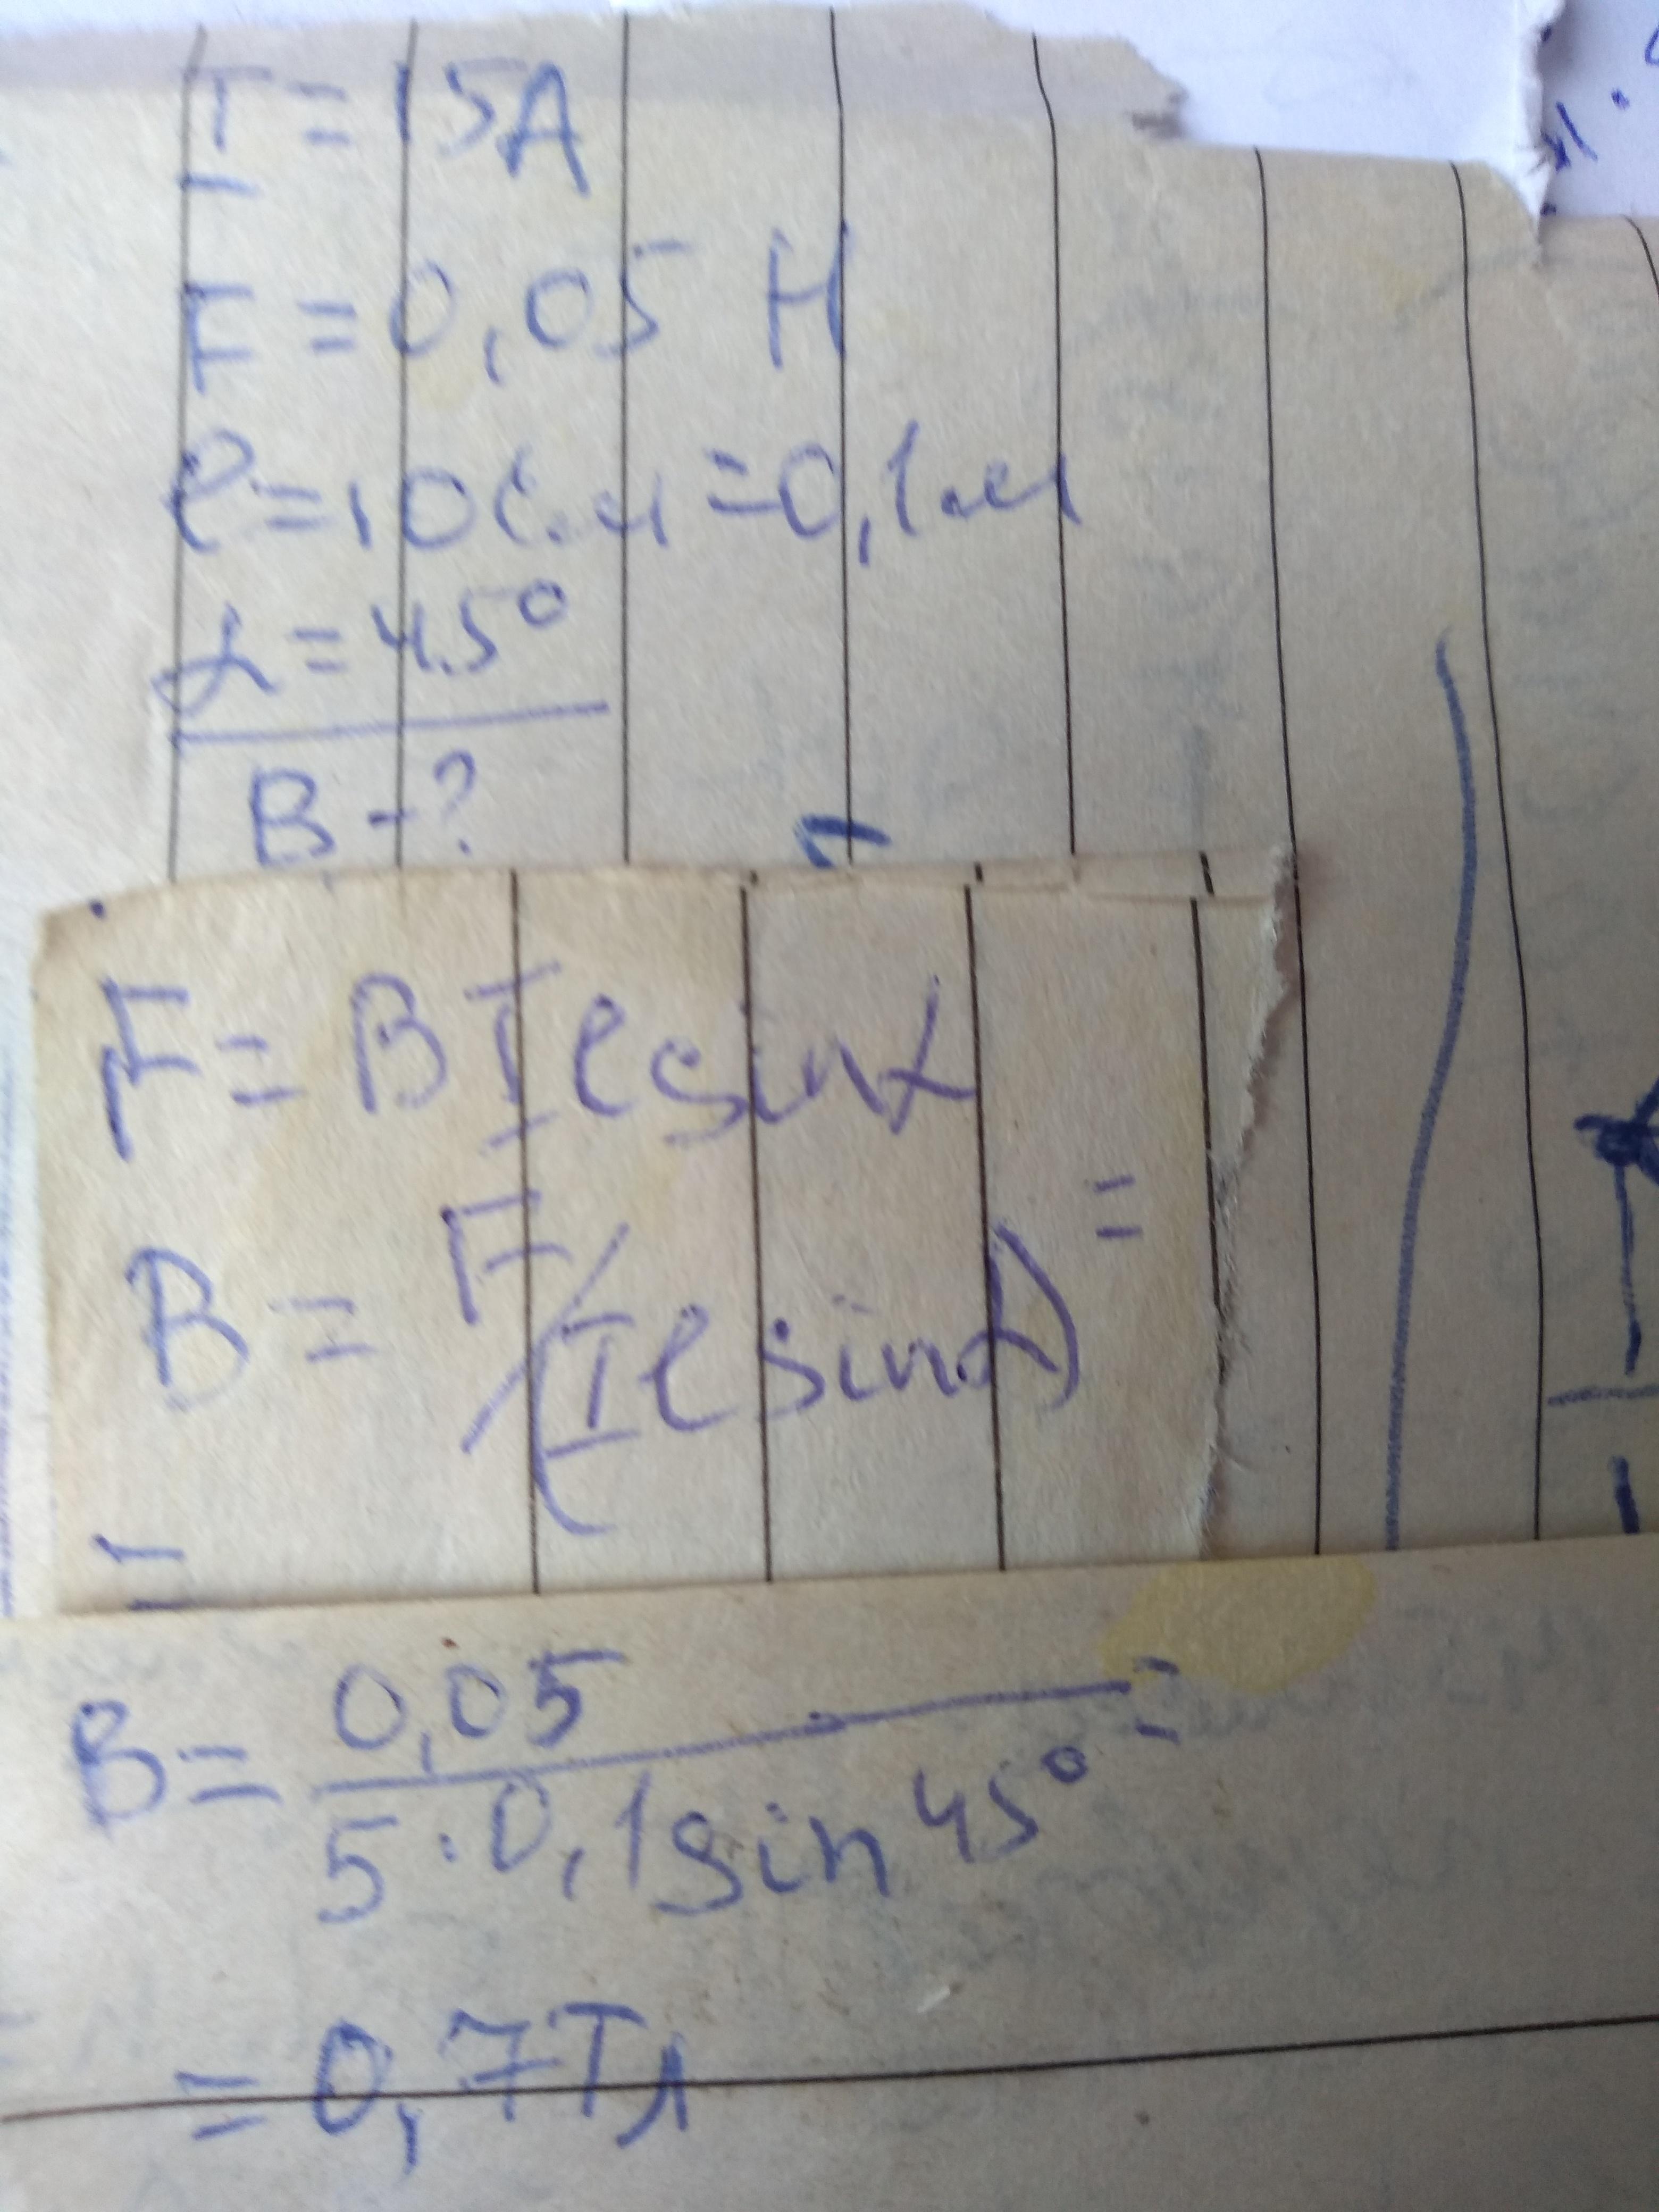 I = 15A
F = 0,05 Н
l = 10см = 0,1м
α = 45°
B - ?
F = BIlsinα
B = F/(Ilsinα) =
B = 0,05 / 5·0,1sin45° =
= 0,7Тл